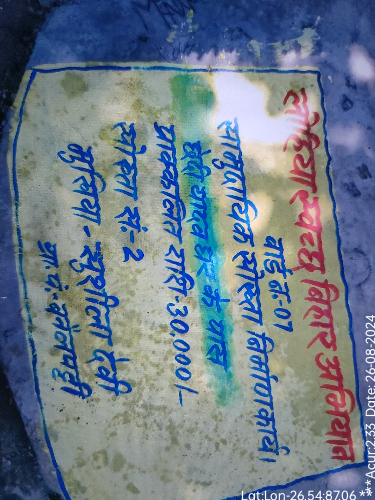 लोहिया स्वच्छ बिहार अभियान
वार्ड नं:-07
सामुदायिक सोख्ता निर्माण कार्य।
यादव घर के पास
प्राक्कलित राशि-30,000/-
सोख्ता सं:-2
मुखिया - सुशीला देवी
ग्रा. पं.-
Lat:Lon-26.54:8706
***Acur:2.33 Date: 26-08-2024